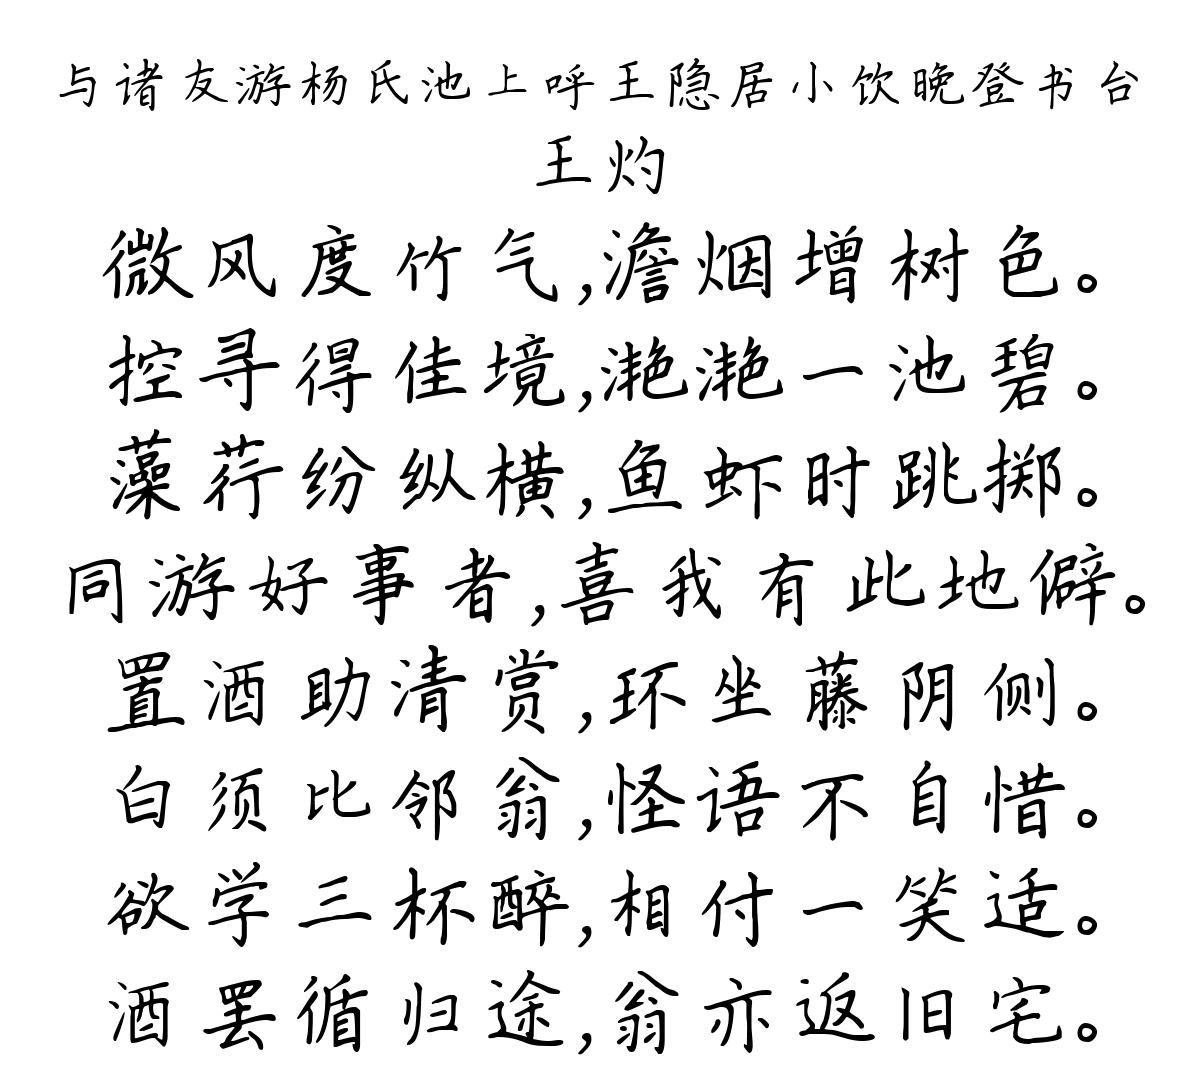 与诸友游杨氏池上呼王隐居小饮晚登书台
王灼
微风度竹气,澹烟增树色。
控寻得佳境,滟滟一池碧。
藻荇纷纵横,鱼虾时跳掷。
同游好事者,喜我有此地僻。
置酒助清赏,环坐藤阴侧。
白须比邻翁,怪语不自惜。
欲学三杯醉,相付一笑适。
酒罢循归途,翁亦返旧宅。